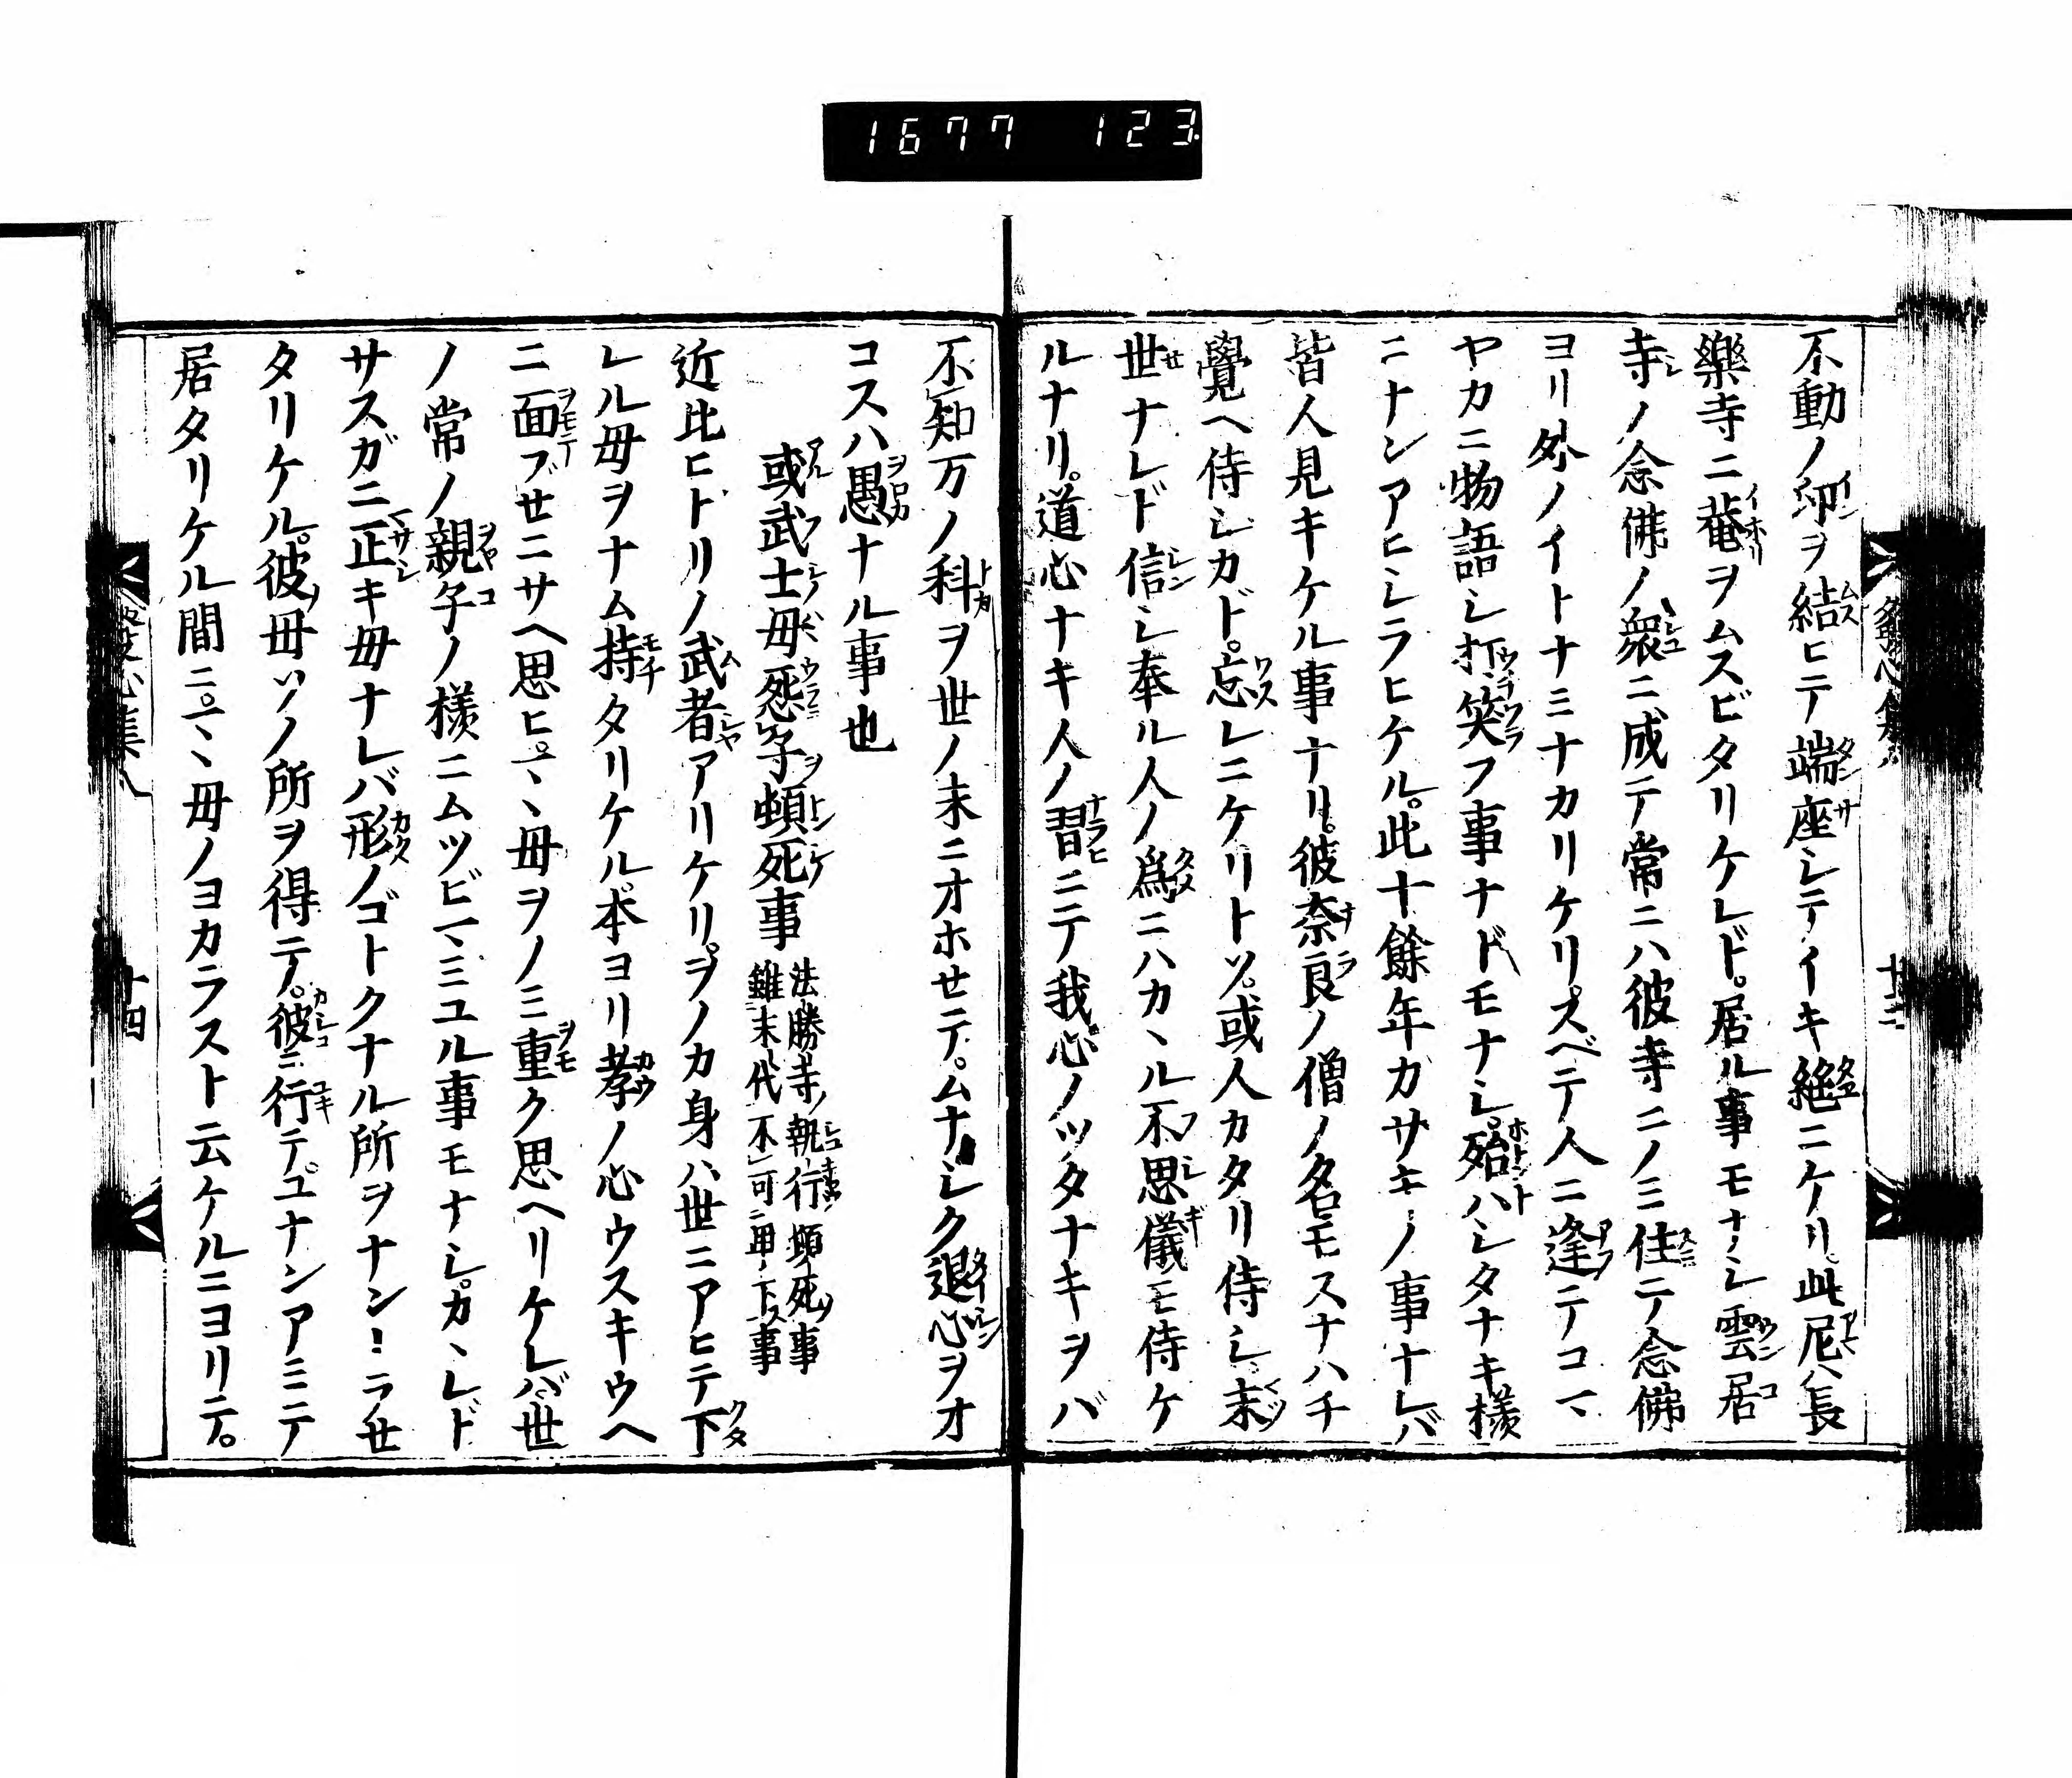 1677 123
不動ノ印ヲ結ヒテ端座シテイキ絶ニケリ。此尼ハ長
樂寺ニ菴ヲムスビタリケレド。居ル事モナシ雲居
寺ノ念佛ノ衆ニ成テ常ニハ彼寺ニノミ住テ念佛
ヨリ外ノイトナミナカリケリ。スベテ人ニ逢テコマ
ヤカニ物語シ打笑フ事ナドモナシ。殆ハシタナキ様
ニナンアヒシラヒケル。此十餘年カサキノ事ナレバ
皆人見キケル事ナリ。彼奈良ノ僧ノ名モスナハチ
覺ヘ侍シカド。忘レニケリトソ。或人カタリ侍シ。末
世ナレド信シ奉ル人ノ爲ニハカヽル不思儀モ侍ケ
ルナリ。道心ナキ人ノ習ニテ我心ノツタナキヲバ
不知万ノ科ヲ世ノ末ニオホセテ。ムナシク退心ヲオ
コスハ愚ナル事也
或武士母怨子頓死事 法勝寺ノ執行頓死ノ事
雖末代不可卑下事
近比ヒトリノ武者アリケリ。ヲノカ身ハ世ニアヒテ下
レル母ヲナム持タリケル。本ヨリ孝ノ心ウスキウヘ
ニ面ブセニサヘ思ヒ。母ヲノミ重ク思ヘリケレバ世
ノ常ノ親子ノ様ニムツビ ミユル事モナシ。カヽレド
サスガニ正キ母ナレバ形ノゴトクナル所ヲナン ラせ
タリケル。彼母ソノ所ヲ得テ。彼ニ行テ。ユナンアミテ
居タリケル間ニ。母ノヨカラスト云ケルニヨリテ。
發心集八
十四